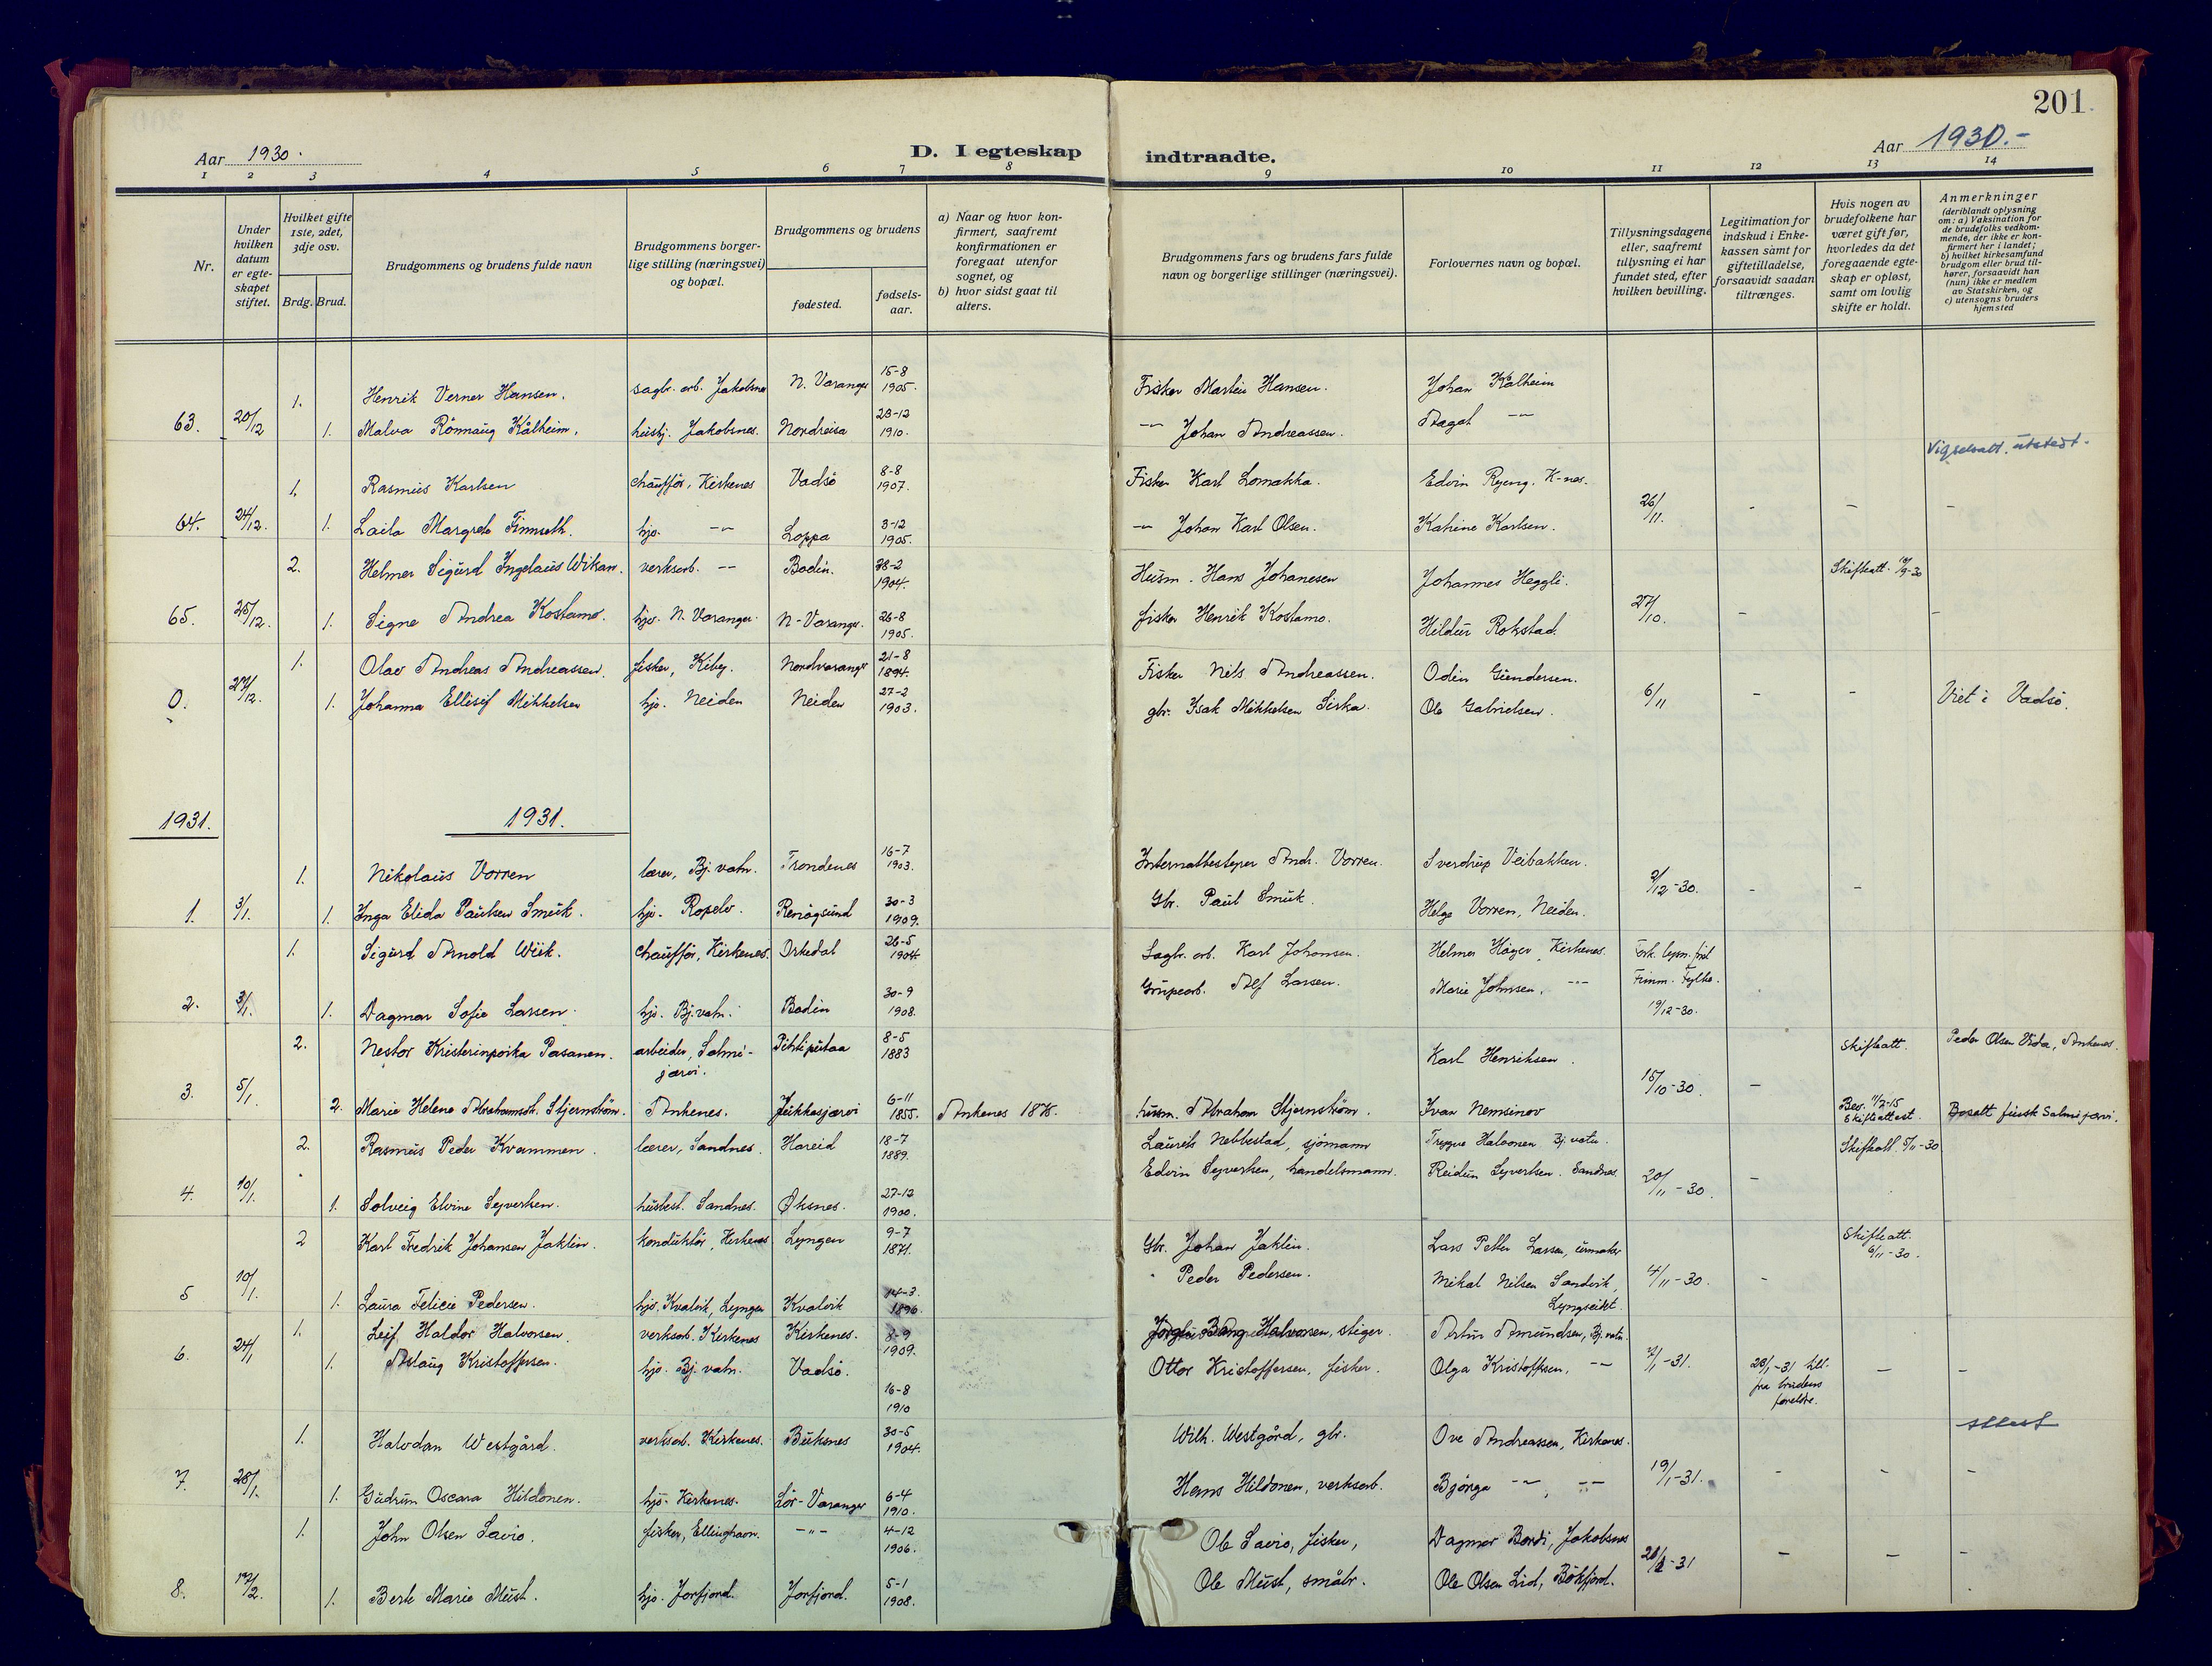 201.
Aar 1930.
D. I egteskap indtraadte.
Aar 1930.-
1 2 3 4 5 6 7 8 9 10 11 12 13 14
Nr.
Under hvilken datum er egte-skapet stiftet.
Hvilket gifte 1ste, 2det, 3dje osv.
Brdg. Brud.
Brudgommens og brudens fulde navn
Brudgommens borger-lige stilling (næringsvei) og bopæl.
Brudgommens og brudens
fødested.
fødsels-aar.
a) Naar og hvor kon-firmert, saafremt konfirmationen er foregaat utenfor sognet, og
b) hvor sidst gaat til alters.
Brudgommens fars og brudens fars fulde navn og borgerlige stillinger (næringsvei).
Forlovernes navn og bopæl.
Tillysningsdagene eller, saafremt tillysning ei har fundet sted, efter hvilken bevilling.
Legitimation for indskud i Enke-kassen samt for giftetilladelse, forsaavidt saadan tiltrænges.
Hvis nogen av brudefolkene har været gift før, hvorledes da det foregaaende egte-skap er opløst, samt om lovlig skifte er holdt.
Anmerkninger
(deriblandt oplysning om: a) Vaksination for de brudefolks vedkom-mende, der ikke er kon-firmert her i landet; b) hvilket kirkesamfund brudgom eller brud til-hører, forsaavidt han (hun) ikke er medlem av Statskirken, og c) utensogns bruders hjemsted
1. Henrik Verner Hansen. sagbr. arb. Jakobsnes N. Varanger 15-8 1905. Fisker Martin Hansen. Johan Kålheim
63. 20/12 1. Malva Rönnaug Kålheim. hushj. Jakobsnes. Nordreisa 23-12 1910. -"- Johan Andreassen. Aagot -"-
Vigselsatt. utstedt.
1. Rasmus Karlsen chaufför, Kirkenes Vadsö 8-8 1907. Fisker Karl Lomakka. Edvin Ryeng. K-nes.
64. 24/12. 1. Laila Margrete Finnseth. hjv. -"- Loppa 3-12 1905. -"- Johan Karl Olsen. Katrine Karlsen. 26/11. - - -
2. Helmer Sigurd Ingelaus Wikan. verksarb. -"- Bodin. 28-2 1904. Husm. Hans Johanesen Johannes Heggli. Skifteatt.
65. 25/12. 1. Signe Andrea Kostamo. hjv. N. Varanger. N-Varanger. 26-8 1905. fisker Henrik Kostamo. Hildur Rokstad. 27/10. - -
1. Olav Andreas Andreassen. fisker, Kiby. Nordvaranger 21-8 1894. Fisker Nils Andreassen. Odin Gundersen.
0. 27/12. 1. Johanna Ellisif Mikkelsen hjv. Neiden Neiden 27-2 1903. gbr. Isak Mikkelsen Sirka. Ole Gabrielsen. 6/11 - - Viet i Vadsö.
1931. 1931.
1. Nikolaus Vorren lærer, Bj. vatn. Trondenes 16-7 1903. Internatbestyrer Andr. Vorren. Sverdrup Veibakken.
1. 3/1. 1. Inga Elida Paulsen Smuk. hjv. Ropelv. Renögsund 30-3 1909. Gbr. Paul Smuk. Helge Vorren, Neiden. 9/12-30. - -
1. Sigurd Arnold Wiik. chaufför, Kirkenes. Orkedal 26-5 1904. Sagbr. arb. Karl Johansen. Helmer Häger, Kirkenes. Fork. lysn. frist Finnm. Fylke. 19/12-30.
2. 3/1. 1. Dagmar Sofie Larsen. hjv. Bj. vatn. Bodin 30-9 1908. Grubearb. Alf Larsen. Marie Johnsen, -"-
2. Nestor Kristerinpoika Pasanen. arbeider, Salmi-järvi. Pihtipudas 8-5 1883 Karl Henriksen. Skifteatt. Peder Olsen Vida, Ankenes.
3. 5/1. 2. Marie Helene Abrahamsdt. Stjernström. Ankenes. Jukkasjærvi 6-11 1855. Ankenes 1878. husm. Abraham Stjernström. Ivar Nemsinov 15/10-30. - Bev. 11/2-15 Skifteattest. Bosatt finsk Salmijærvi.
2. Rasmus Peder Kvammen. lærer, Sandnes. Hareid 18-7 1889. Laurits Nebbestad, sjömann Trygve Halvorsen Bj. vatn. Skifteatt. 5/11-30
4. 10/1. 1. Solveig Elvine Syvertsen. husbest. Sandnes. Øksnes. 27-12 1900. Edvin Syvertsen, handelsmann. Reidun Syvertsen. Sandnes. 20/11-30. -
2 Karl Fredrik Johansen Jaklin. konduktör, Kirkenes Lyngen 9-7 1871. Gbr. Johan Jaklin. Lars Petter Larsen, urmaker Skifteatt. 6/11-30.
5 10/1. 1. Laura Felicie Pedersen. hjv. Kvalvik, Lyngen Kvalvik 14-3. 1896. " Peder Pedersen. Mikal Nilsen Sandvik, Lyngseidet. 4/11-30. -
1. Leif Haldor Halvorsen. verksarb. Kirkenes Kirkenes. 8-9 1909. Halvorsen, stiger. Artur Amundsen, Bj. vatn.
6. 24/1 1. Aslaug Kristoffersen. hjv. Bj. vatn. Vadsö. 16-8 1910 Ottar Kristoffersen, fisker. Olga Kristoffersen, -"- 7/1-31. 20/1-31 till. fra brudens foreldre. - -
attest
1. Halvdan Westgård. verksarb. Kirkenes. Buksnes 30-5 1904. Wilh. Westgård, gbr. Ove Andreassen, Kirkenes.
7. 28/1. 1. Gudrun Oscara Hildonen. hjv. Kirkenes. Sör-Varanger 6-4 1910. Hans Hildonen, verksarb. Bjørga -"-, -"- 19/1-31. - - -
1. John Olsen Savio. fisker, Ellinghavn. -"- 4-12 1906. Ole Savio, fisker, Dagmar Bordi, Jakobsnes
8. 17/2. 1. Berte Marie Must. hjv. Jarfjord. Jarfjord. 5-1 1908. Ole Must, småbr. Ole Olsen Lid, Bökfjord. - - -